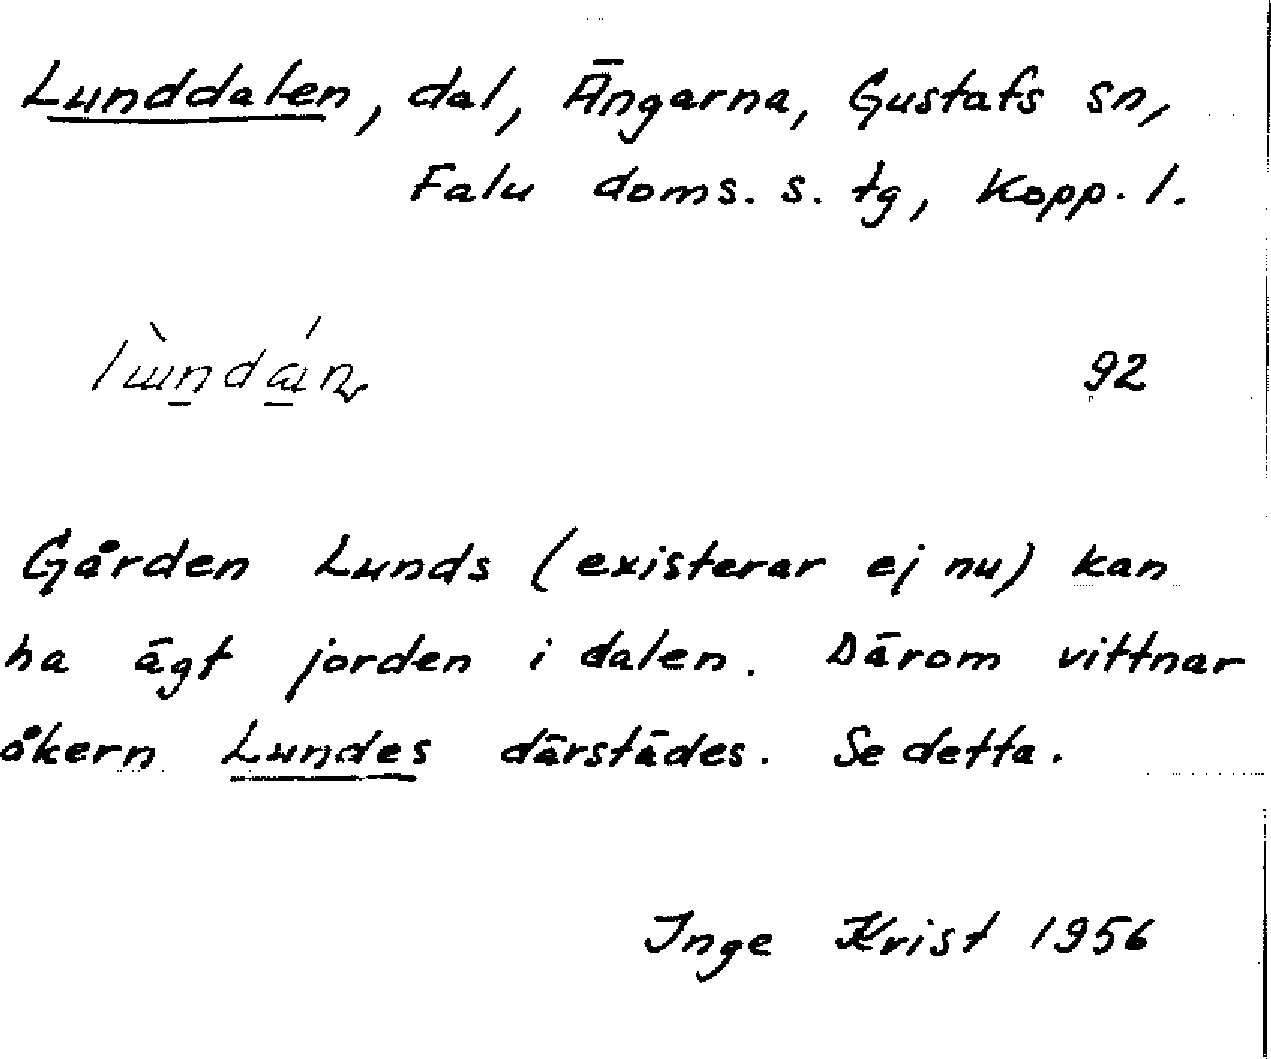 Lunddalen, dal, Ängarna, Gustafs sn,
Falu doms. s. tg, Kopp. l.
92
Gården Lunds (existerar ej nu) kan
ha ägt jorden i dalen. Därom vittnar
åkern Lundes därstädes. Se detta.
Inge Krist 1956